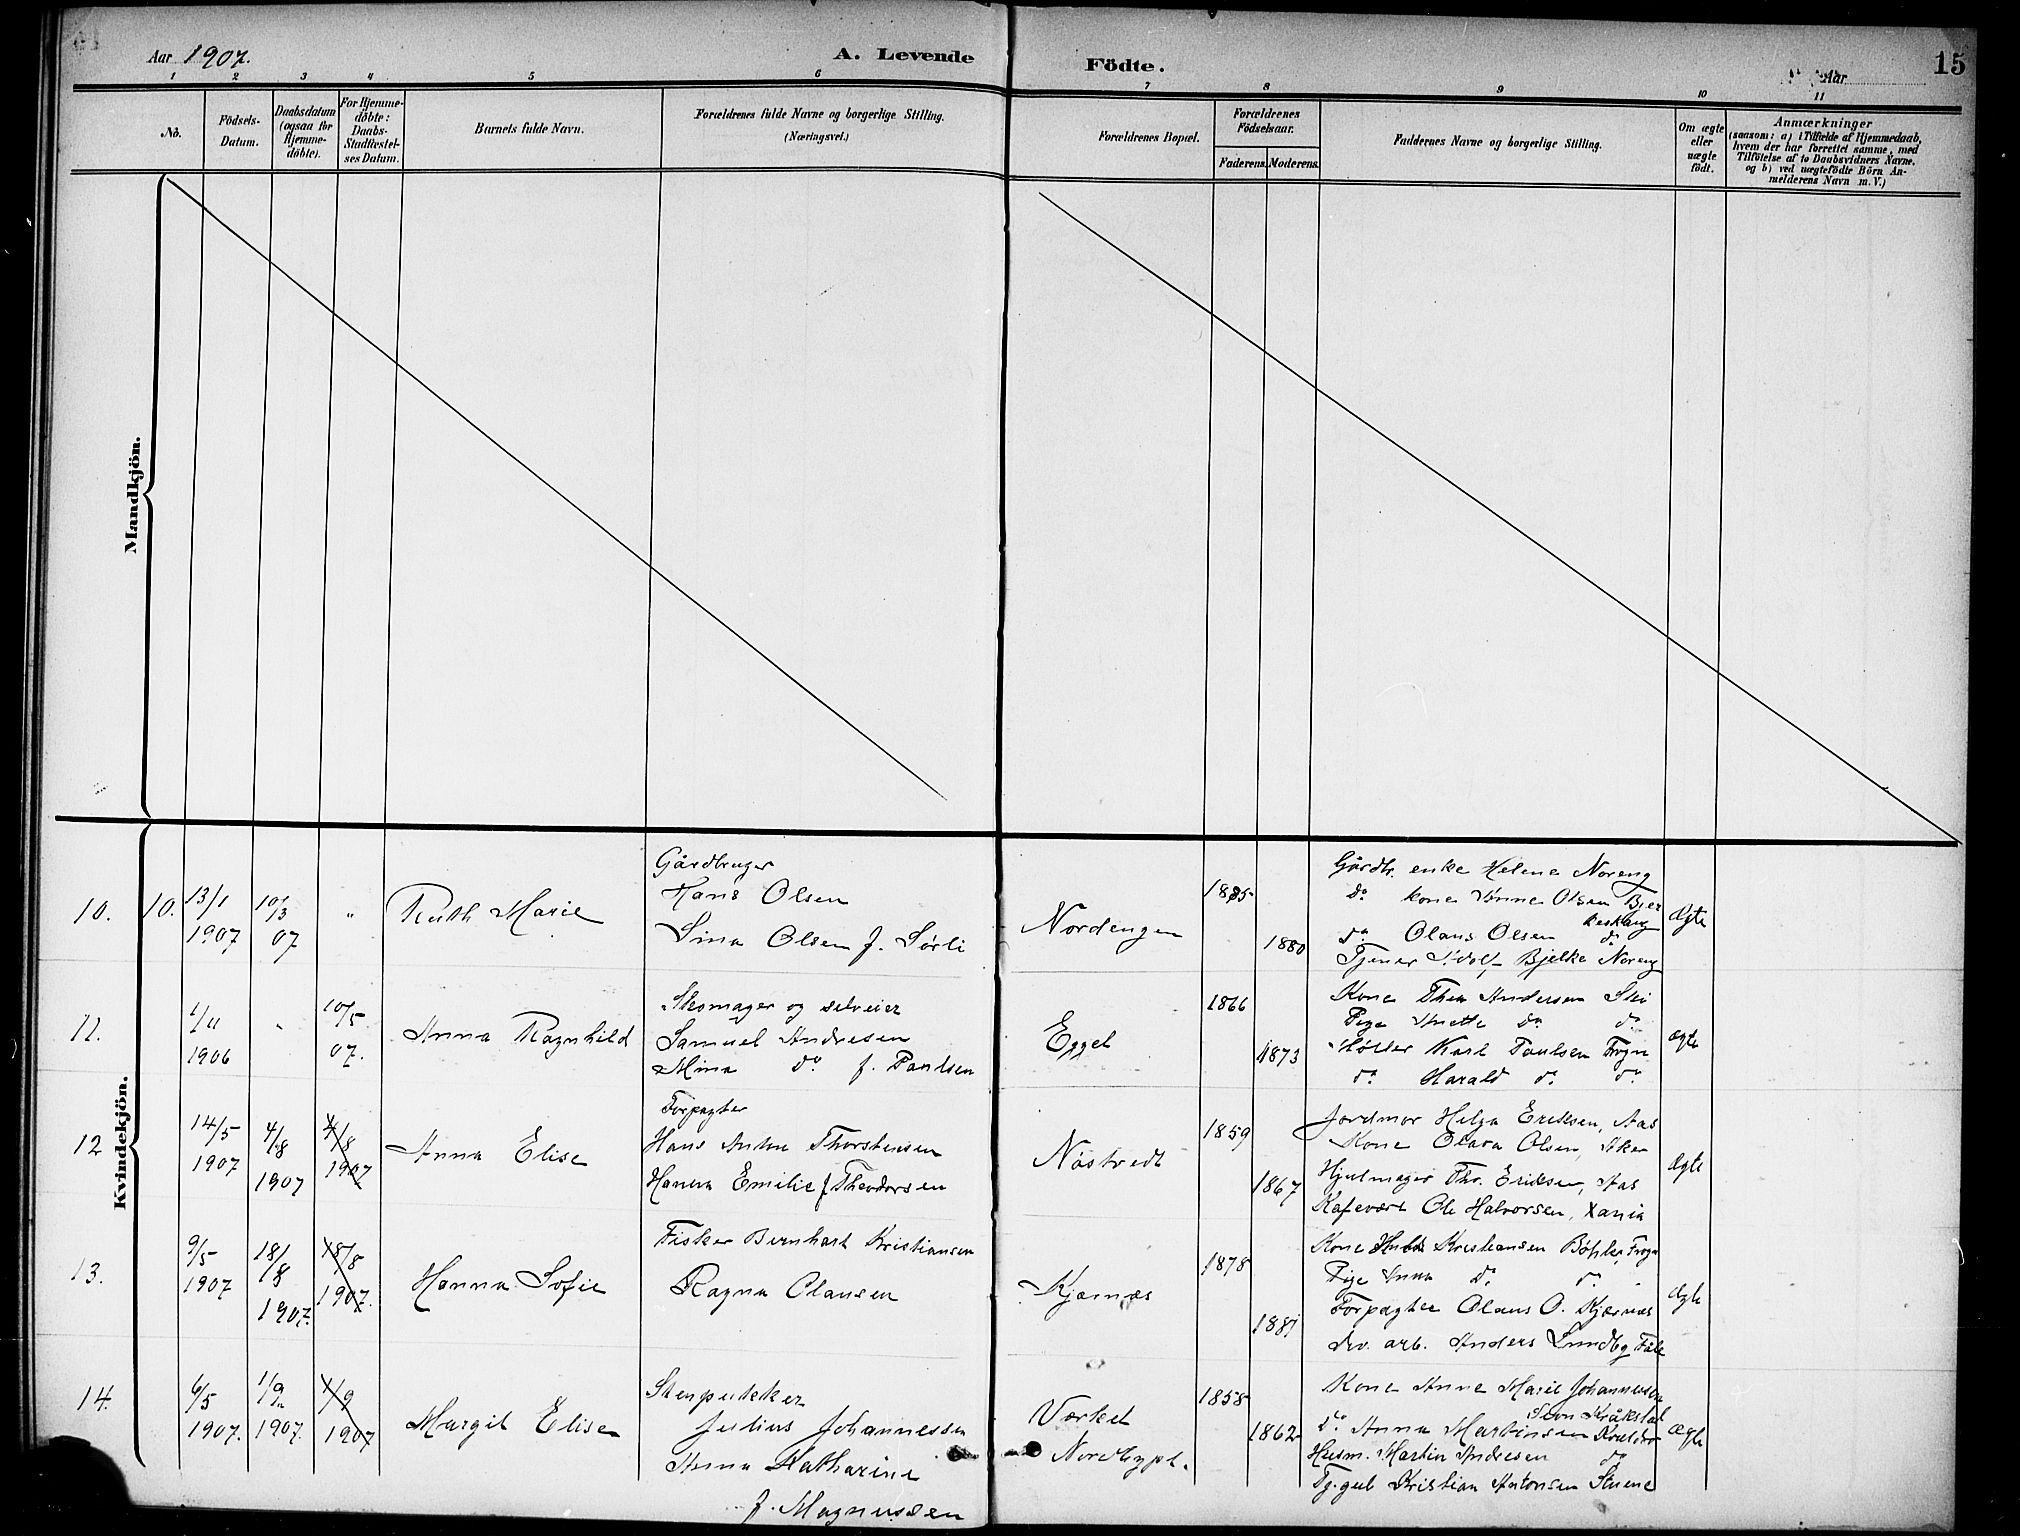 Aar 1907.
A. Levende
Födte.
Aar
15
1 2 3 4 5 6 7 8 9 10 11
No.
Födsels-Datum.
Daabsdatum (ogsaa for Hjemme-döbte).
For Hjemme-döbte: Daabs-Stadfæstel-ses Datum.
Barnets fulde Navn.
Forældrenes fulde Navne og borgerlige Stilling.
(Næringsvei.)
Forældrenes Bopæl.
Forældrenes Födselsaar.
Faderens. Moderens.
Faddernes Navne og borgerlige Stilling.
Om ægte eller uægte födt.
Anmærkninger
(saasom: a) i Tilfælde af Hjemmedaab,
hvem der har forrettet samme, med
Tilföielse af to Daabsvidners Navne,
og b) ved uægtefödte Börn An-
melderens Navn m. V.)
Mandkjön.
Kvindekjön.
10. 10. 13/1 1907 10/3 07 "
Ruth Marie
Gårdbruger
Hans Olsen
Sina Olsen f. Sørli
Nordengen
1885
1880
Gårdbr. enke Helene Noreng
do kone Olsen
do Olaus Olsen do
Tjener Adolf Bjelke Noreng
Ægte
11. 1/11 1906 " 10/5 07.
Anna Ragnhild
Skomager og selveier
Samuel Andresen
Mina do f. Paulsen
Egget
1866
1873
Kone Thea Andersen Ski
Pige Anette do do
Møller Karl Paulsen Frogn
do Harald do do
Ægte
12 14/5 1907 4/8 1907 4/8 1907
Anna Elise
Forpagter
Hans Anton Thorstensen
Hanna Emilie f Theodorsen
Nöstvedt
1859
1867
Jordmor Helga Eriksen, Aas
Kone Olava Olsen, Aker
Hjulmager Thr. Eriksen, Aas
Kafevært Ole Halvorsen, Xania
Ægte
13. 9/5 1907 18/8 1907. 18/8 1907.
Hanna Sofie
Fisker Bernhart Kristiansen
Ragna Olausen
Kjærnæs
1878
1881
Kone Hulda Kristiansen Böhler, Frogn
Pige Anna do do
Forpagter Olaus O. Kjærnæs
Arb. Anders Lundby
Ægte
14. 6/5 1907. 1/9 1907. 1/9 1907
Margit Elise
Stenpukker
Julius Johannessen
Anna Katharine
f. Magnussen
Værket
Nordbypl.
1858
1862
Kone Anne Marie Johannessen
Kråkstad
do Anna Martinsen
Husm. Martin Andresen do
Tj. gut Kristian Antonsen Stuene
Ægte